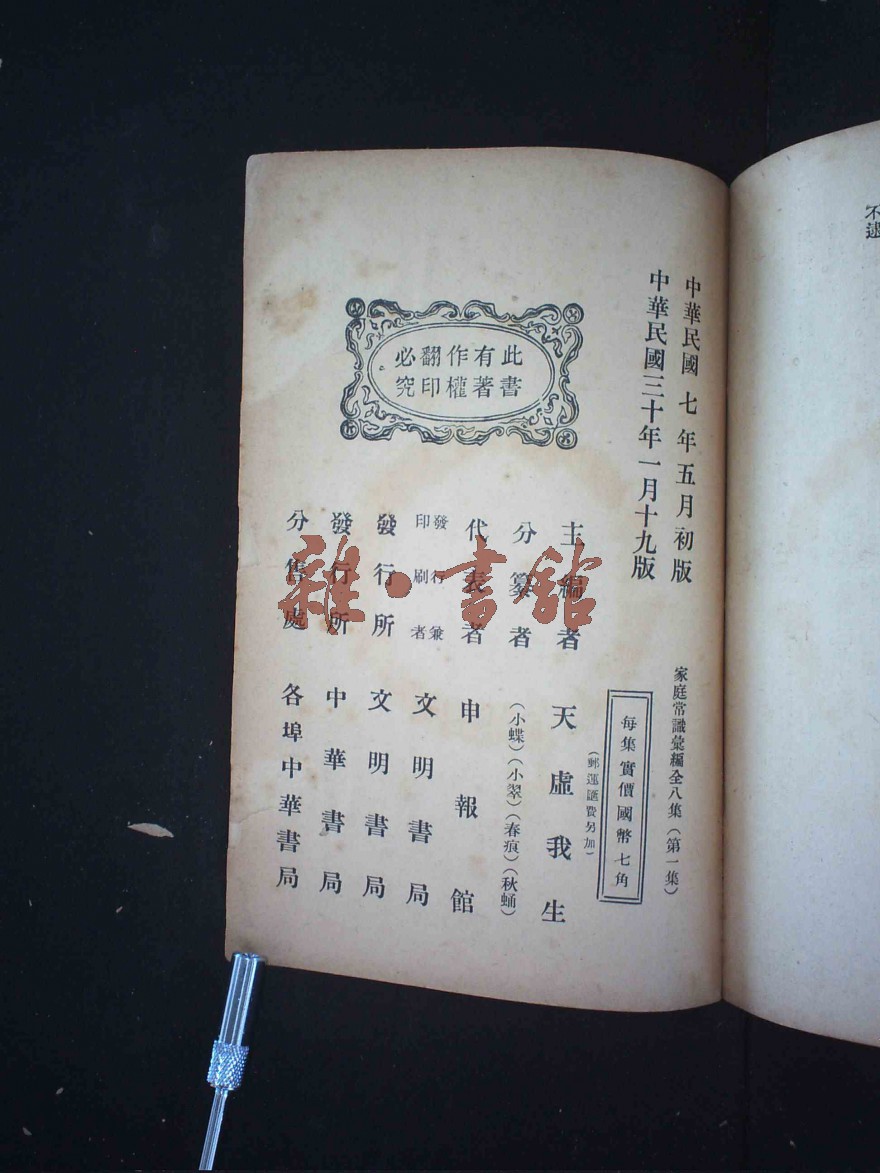 不還
中華民國七年五月初版
中華民國三十年一月十九版
此書
有著
作權
翻印
必究
家庭常識彙編全八集(第一集)
每集實價國幣七角
(郵運匯費另加)
主編者 天虛我生
分纂者 (小蝶)(小翠)(春痕)(秋蛹)
代表者 申報館
發行兼
印刷者 文明書局
發行所 文明書局
發行所 中華書局
分售處 各埠中華書局
雜·書館